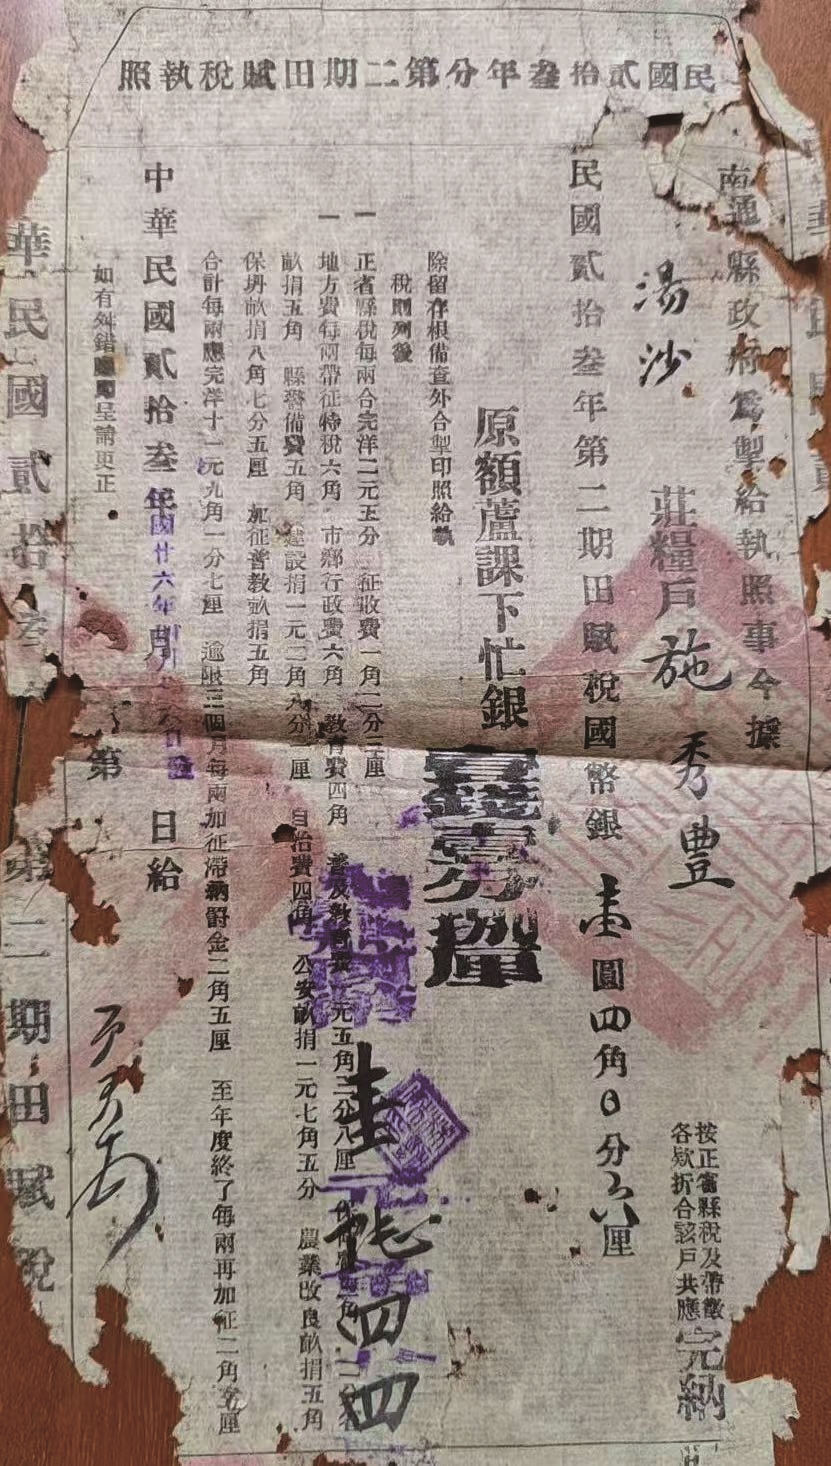 民國貳拾叁年分第二期田賦稅執照
南通縣政府為掣給執照事今據
湯沙
莊糧戶施秀豊
按正省縣稅及帶徵
各欵折合該戶共應完納
民國貳拾叁年第二期田賦稅國幣銀壹圓四角0分六厘
原額蘆課下忙銀壹錢壹分釐
除留存根備查外合掣印照給執
稅則列後
一正省縣稅每兩合完洋二元五分 征收費一角二分三厘
一地方費每兩帶征特稅六角 市鄉行政費六角 教育費四角 普及教育 元五角二分八厘
畝捐五角 縣警備費五角 建設捐一元二角八分二厘 自治費四角 公安畝捐一元七角五分 農業改良畝捐五角
保坍畝捐八角七分五厘 加征普教畝捐五角
合計每兩應完洋十一元九角一分七厘 逾限三個月每兩加征滯納罰金二角五厘 至年度終了每兩再加征二角 厘
中華民國貳拾叁年 月 日給
國廿六年
如有舛錯 即呈請更正
第
華民國貳拾叁 第二期田賦稅